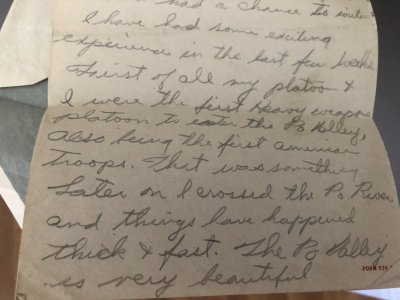 had a chance to write
I have had some exciting
experience in the last few weeks.
First of all my platoon &
I were the first Heavy weapons
platoon to enter the Po Valley,
also being the first american
troops. That was something
Later on I crossed the Po River
and things have happened
thick & fast. The Po Valley
is very beautiful
FORM 539